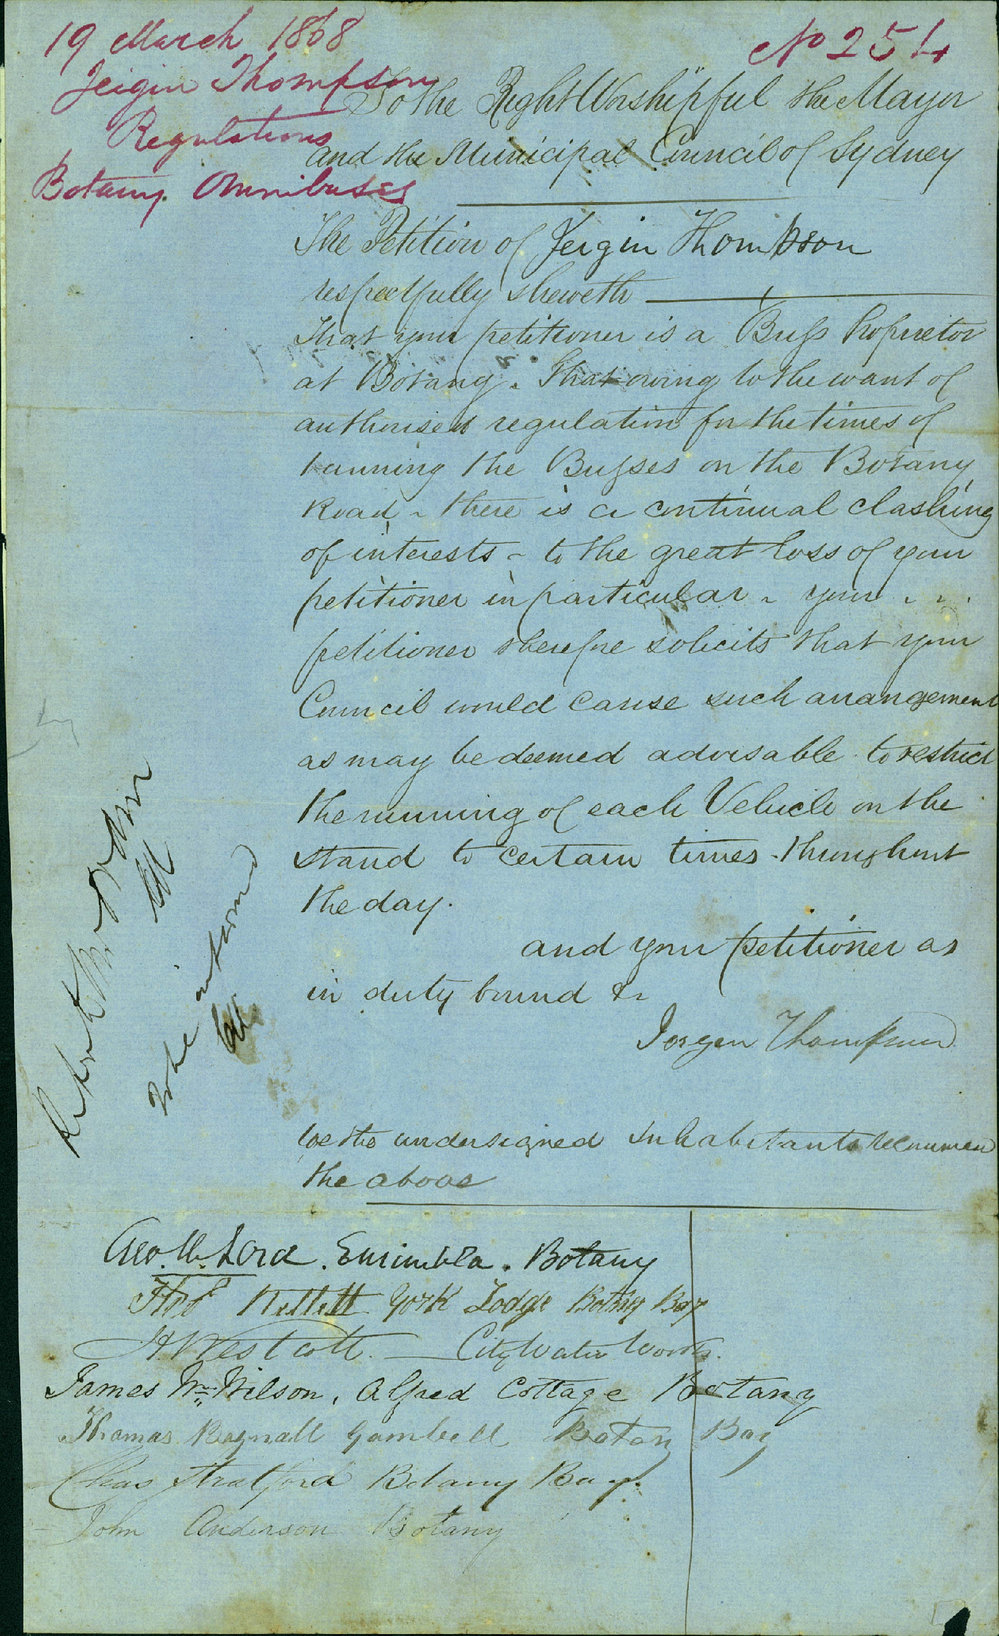 19 March 1868
No 254
Jeigin Thompson
Regulations
Botany Omnibuses
To the Right Worshipful the Mayor
and the Municipal Council of Sydney
The Petition of Jeigin Thompson
respectfully sheweth
That your petitioner is a Buss Proprietor
at Botany. That owing to the want of
authorised regulation for the times of
running the Busses on the Botany
Road - there is a continual clashing
of interests - to the great loss of your
petitioner in particular - your
petitioner therefore solicits that your
Council would cause such arrangement
as may be deemed advisable to restrict
the running of each Vehicle on the
stand to certain times throughout
the day.
and your petitioner as
in duty bound &c
Jorgen Thompson
We the undersigned Inhabitants recommend
the above
Geo. W. Lord. Eurimbla. Botany
Thos Kellett York Lodge Botny Bay
H Westcott. City Water Works.
James Wm Wilson, Alfred Cottage Botany
Thomas Bagnall Gambell Botany Bay
Chas Stratford Botany Bay.
John Anderson Botany
to be informed